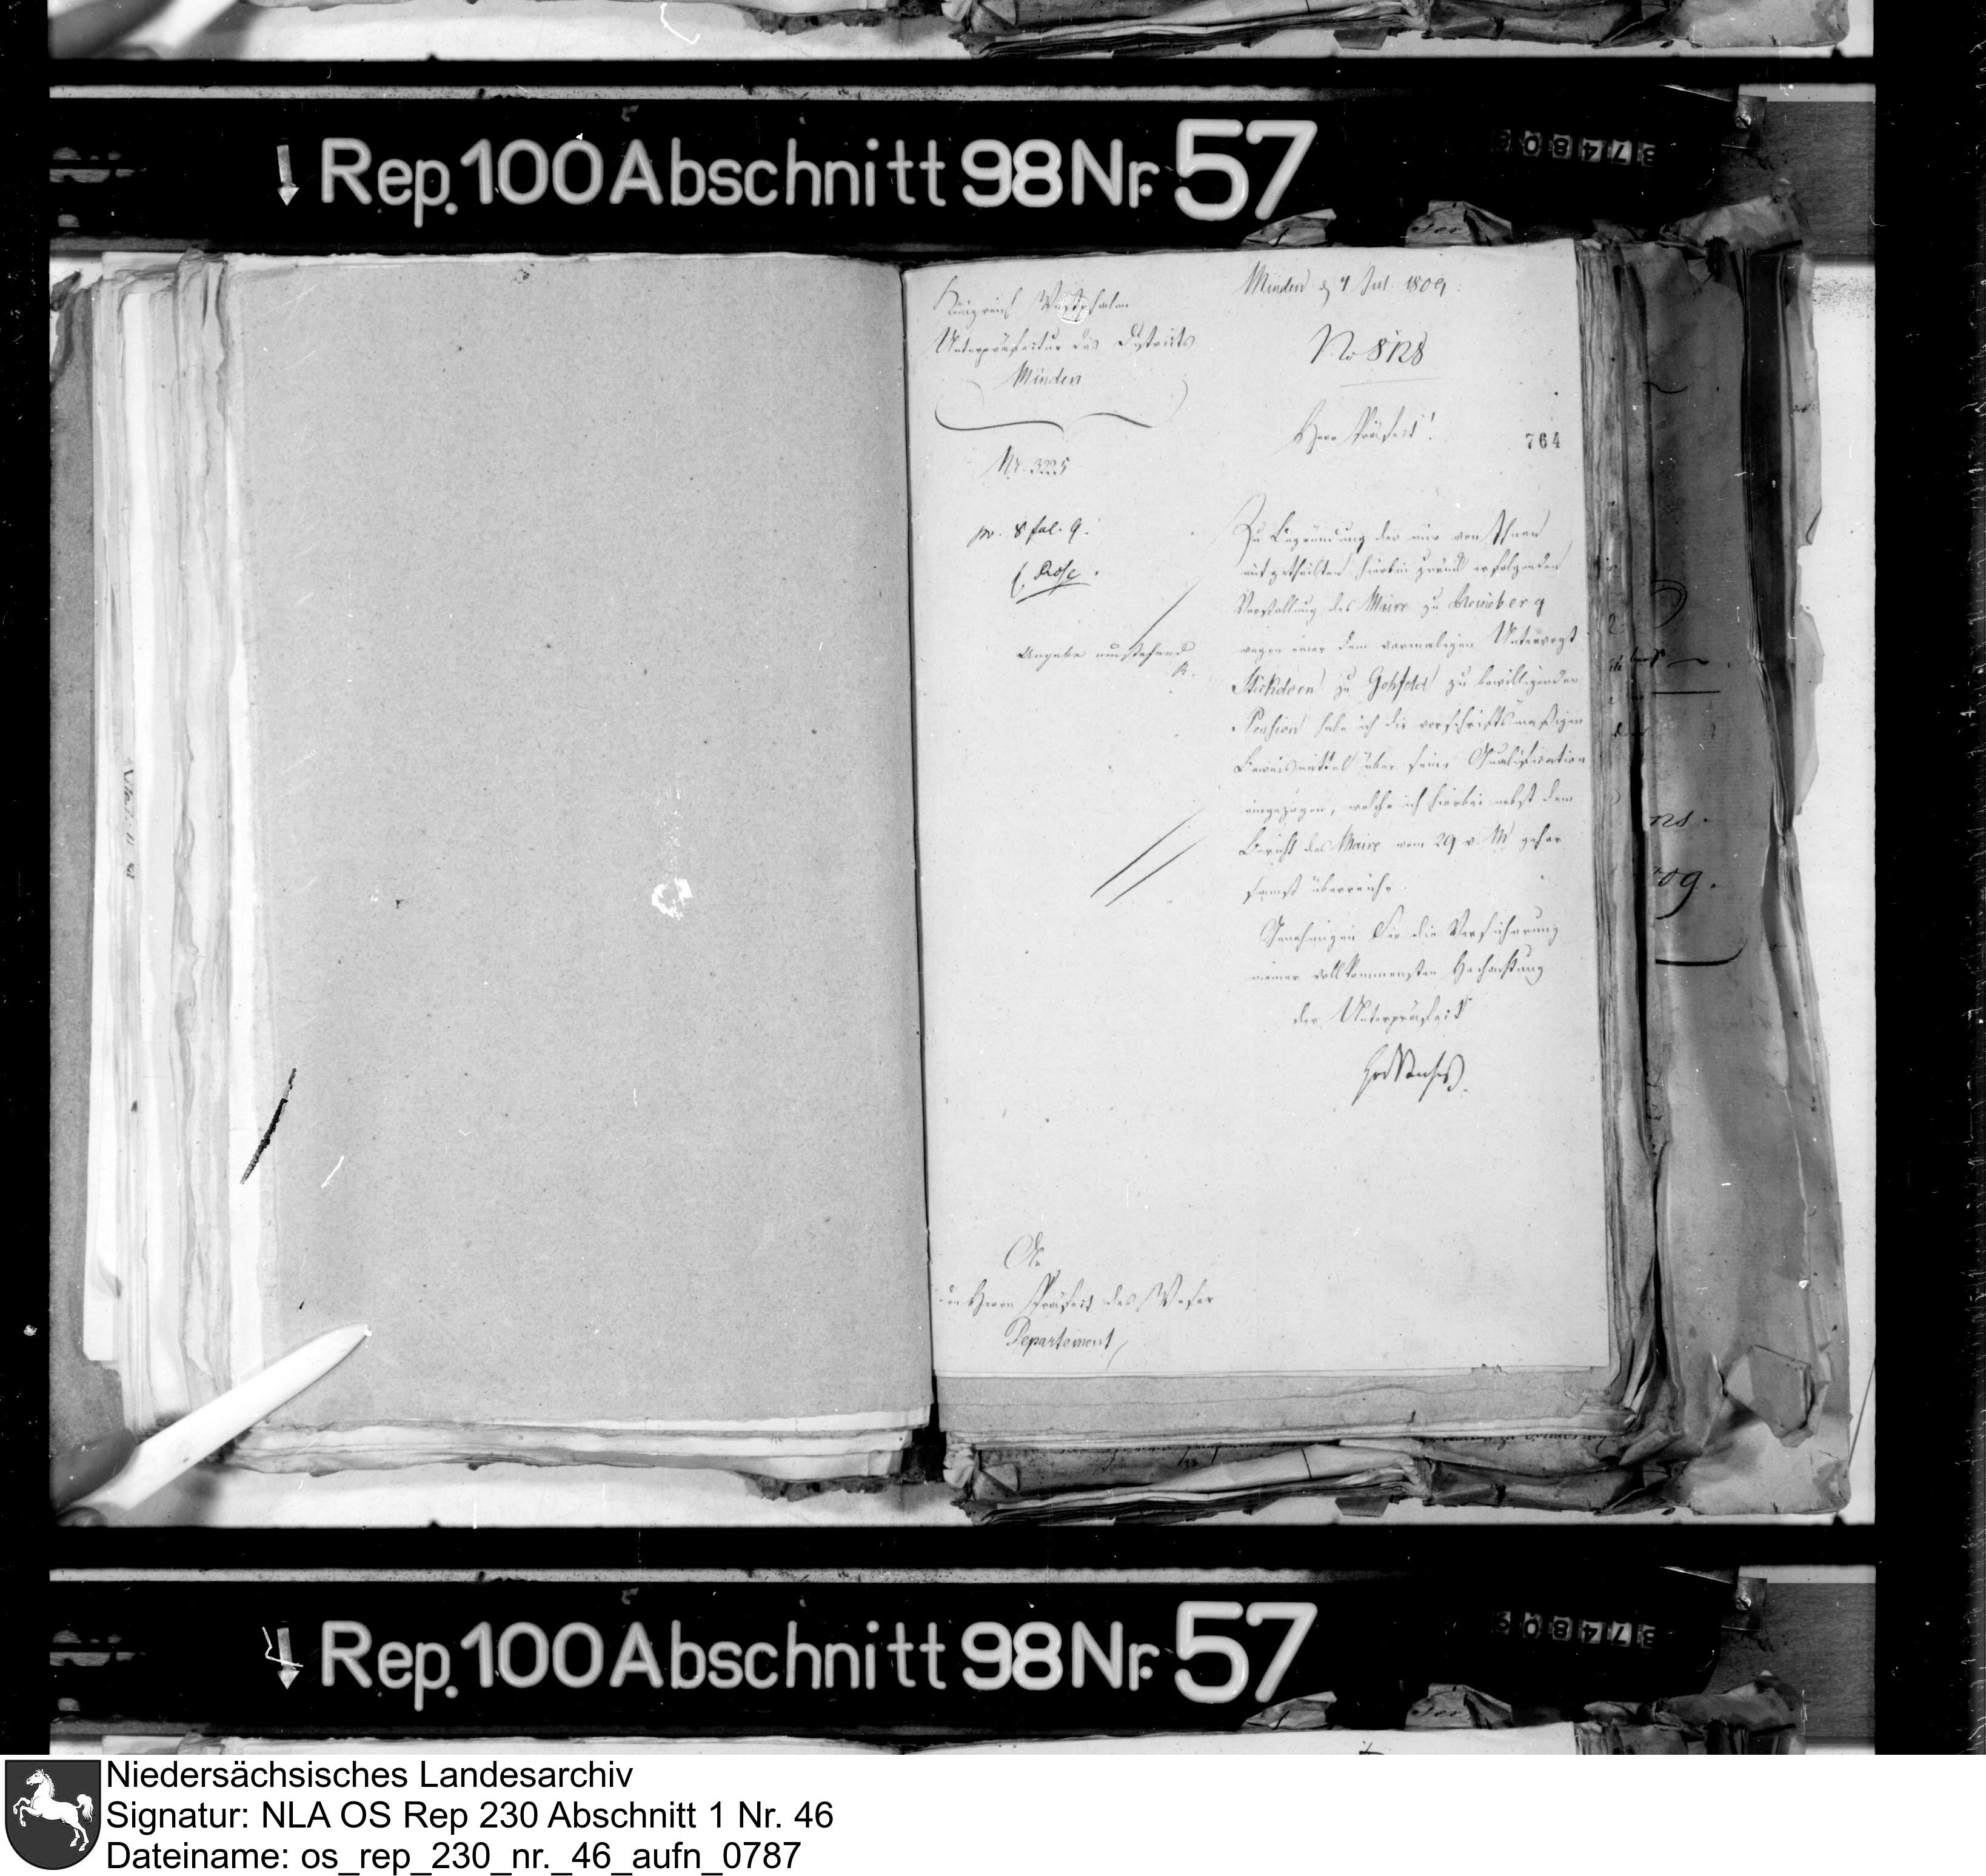 Rep. 100 Abschnitt 98 Nr. 57
Königreich Westphalen
Unterpräfectur des Districts
Minden
Nr. 3225
pr. 8 Jul. 9.
Minden d 7 Jul 1809.
No 8128
Herr Präfect!
764
Zu Begründung der mir von Ihnen
mitgetheilten hierbei zurück erfolgenden
Vorstellung des Maire zu Menneberg
wegen einer dem vormaligen Untervogt
Stickdorn zu Gohfeld zu bewilligenden
Pension habe ich die vorschriftsmäßigen
Beweismittel über seine Qualification
eingezogen, welche ich hierbei nebst dem
Bericht des Maire vom 29 v. M gehor
samst überreiche.
Genehmigen Sie die Versicherung
meiner vollkommensten Hochachtung
der Unterpräfect
An
den Herrn Präfect des Weser
Departement
Rep. 100 Abschnitt 98 Nr. 57
Niedersächsisches Landesarchiv
Signatur: NLA OS Rep 230 Abschnitt 1 Nr. 46
Dateiname: os_rep_230_nr._46_aufn_0787